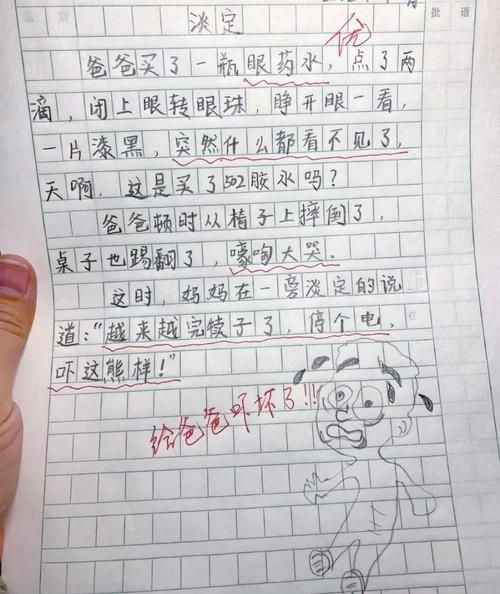 批 语
淡定
优
爸爸买了一瓶眼药水，点了两
滴，闭上眼转眼珠，睁开眼一看，
一片漆黑，突然什么都看不见了，
天啊，这是买了502胶水吗？
爸爸顿时从椅子上摔倒了，
桌子也踢翻了，嚎啕大哭。
这时，妈妈在一旁淡定的说
道："越来越完犊子了，停个电，
吓这熊样！"
给爸爸吓坏了!!!